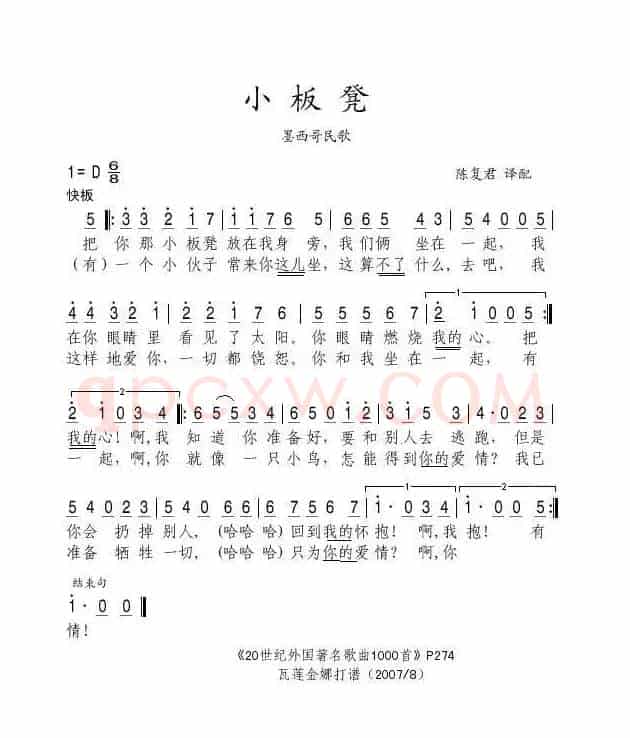 小板凳
墨西哥民歌
1=D 6/8
陈复君 译配
快板
5 ‖: 3̇ 3̇ 2̇ 1̇ 7 | 1̇ 1̇ 7 6 5 | 5 6 5 4 3 | 5 4 0 0 5 |
把 你那小板凳 放在我身 旁，我们俩 坐在 一起，我
(有)一个小伙子 常来你这儿坐，这算不了什么，去吧，我
4̇ 4̇ 3̇ 2̇ 1̇ | 2̇ 2̇ 1̇ 7 6 | 5 5 5 5 6 7 | 1 2̇ 1̇ 0 0 5 :‖
在你眼睛里 看见了太阳。你眼睛燃烧我的心。把
这样地爱你，一切都饶恕。你和我坐在一 起，有
2
2̇ 1̇ 0 3 4 ‖: 6 5 5 3 4 | 6 0 5 1̇ 2̇ | 3̇ 1̇ 6 5 3 | 4·0 3 4 |
我的心！啊，我 知道 你准备好，要和别人去 逃跑，但是
一起，啊，你 就像 一只小鸟，怎能得到你的爱情？我已
5 4 0 2 3 | 5 4 0 6 6 | 6 7 5 6 7 | 1 1̇·0 3 4 | 2 1̇·0 0 5 :‖
你会 扔掉别人，(哈哈 哈)回到我的怀抱！啊，我抱！有
准备 牺牲一切，(哈哈 哈)只为你的爱情？啊，你
结束句
1̇·0 0 ‖
情！
《20世纪外国著名歌曲1000首》P274
瓦莲金娜打谱（2007/8）
qpcxw.COM